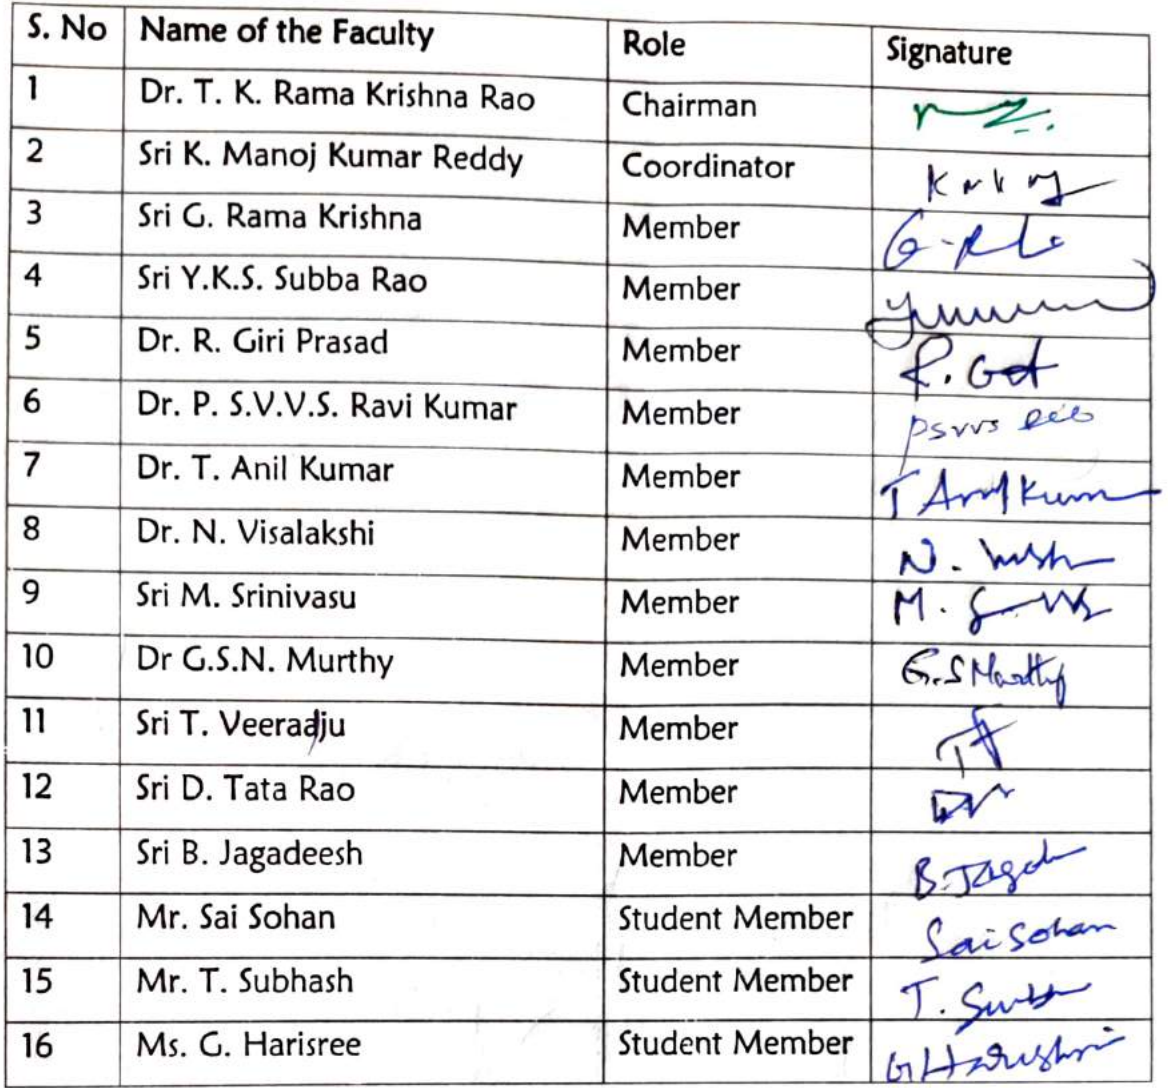 S. No Name of the Faculty Role Signature
1 Dr. T. K. Rama Krishna Rao Chairman
2 Sri K. Manoj Kumar Reddy Coordinator
3 Sri G. Rama Krishna Member
4 Sri Y.K.S. Subba Rao Member
5 Dr. R. Giri Prasad Member
6 Dr. P. S.V.V.S. Ravi Kumar Member
7 Dr. T. Anil Kumar Member
8 Dr. N. Visalakshi Member
9 Sri M. Srinivasu Member
10 Dr G.S.N. Murthy Member
11 Sri T. Veeraadju Member
12 Sri D. Tata Rao Member
13 Sri B. Jagadeesh Member
14 Mr. Sai Sohan Student Member Sai Sohan
15 Mr. T. Subhash Student Member
16 Ms. G. Harisree Student Member